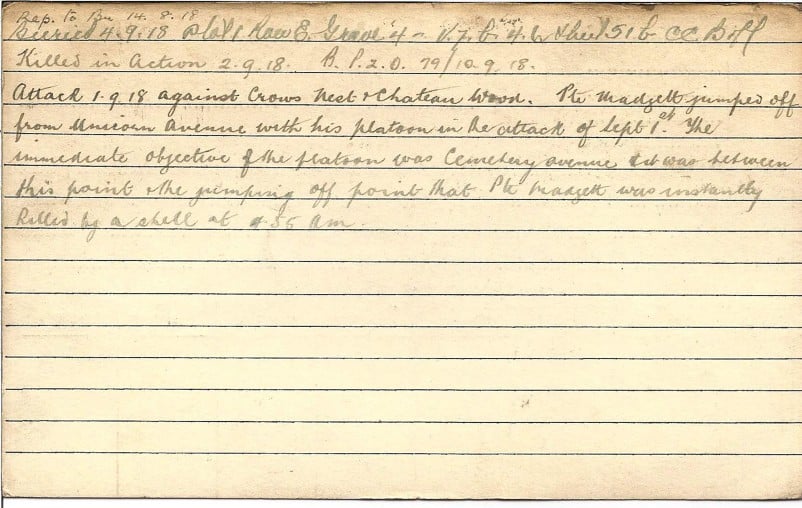 Rep. to Bn 14.8.18
Buried 4.9.18 Plot 1 Row E. Grave 4 - V.7.b. 4.6 Sheet 51b C.C. Boff
Killed in Action 2.9.18. B.P.2.O. 79/10.9.18.
Attack 1.9.18 against Crows Nest & Chateau Wood. Pte Madgett jumped off
from Unicorn Avenue with his platoon in the attack of Sept 1st. The
immediate objective of the platoon was Cemetery avenue & it was between
this point & the jumping off point that Pte Madgett was instantly
killed by a shell at 4 55 am.